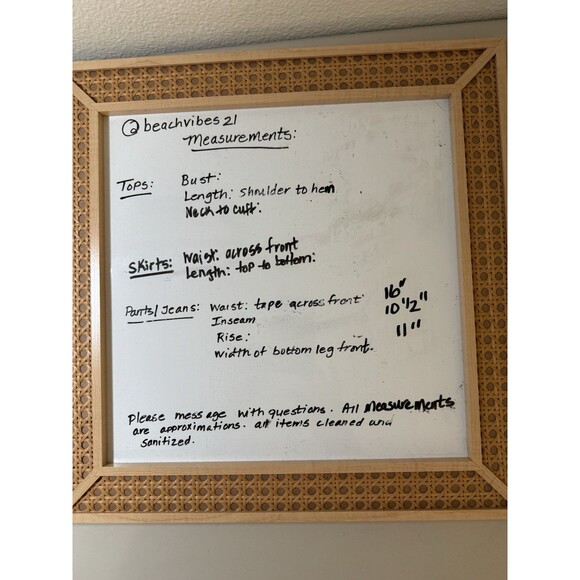 @beachvibes21
Measurements:
Tops: Bust:
Length: Shoulder to hem
Neck to cuff:
Skirts: Waist: across front
Length: top to bottom:
Pants/Jeans: Waist: tape across front 16"
Inseam 10 1/2"
Rise: 11"
Width of bottom leg front.
Please message with questions. All measurements
are approximations. all items cleaned and
sanitized.